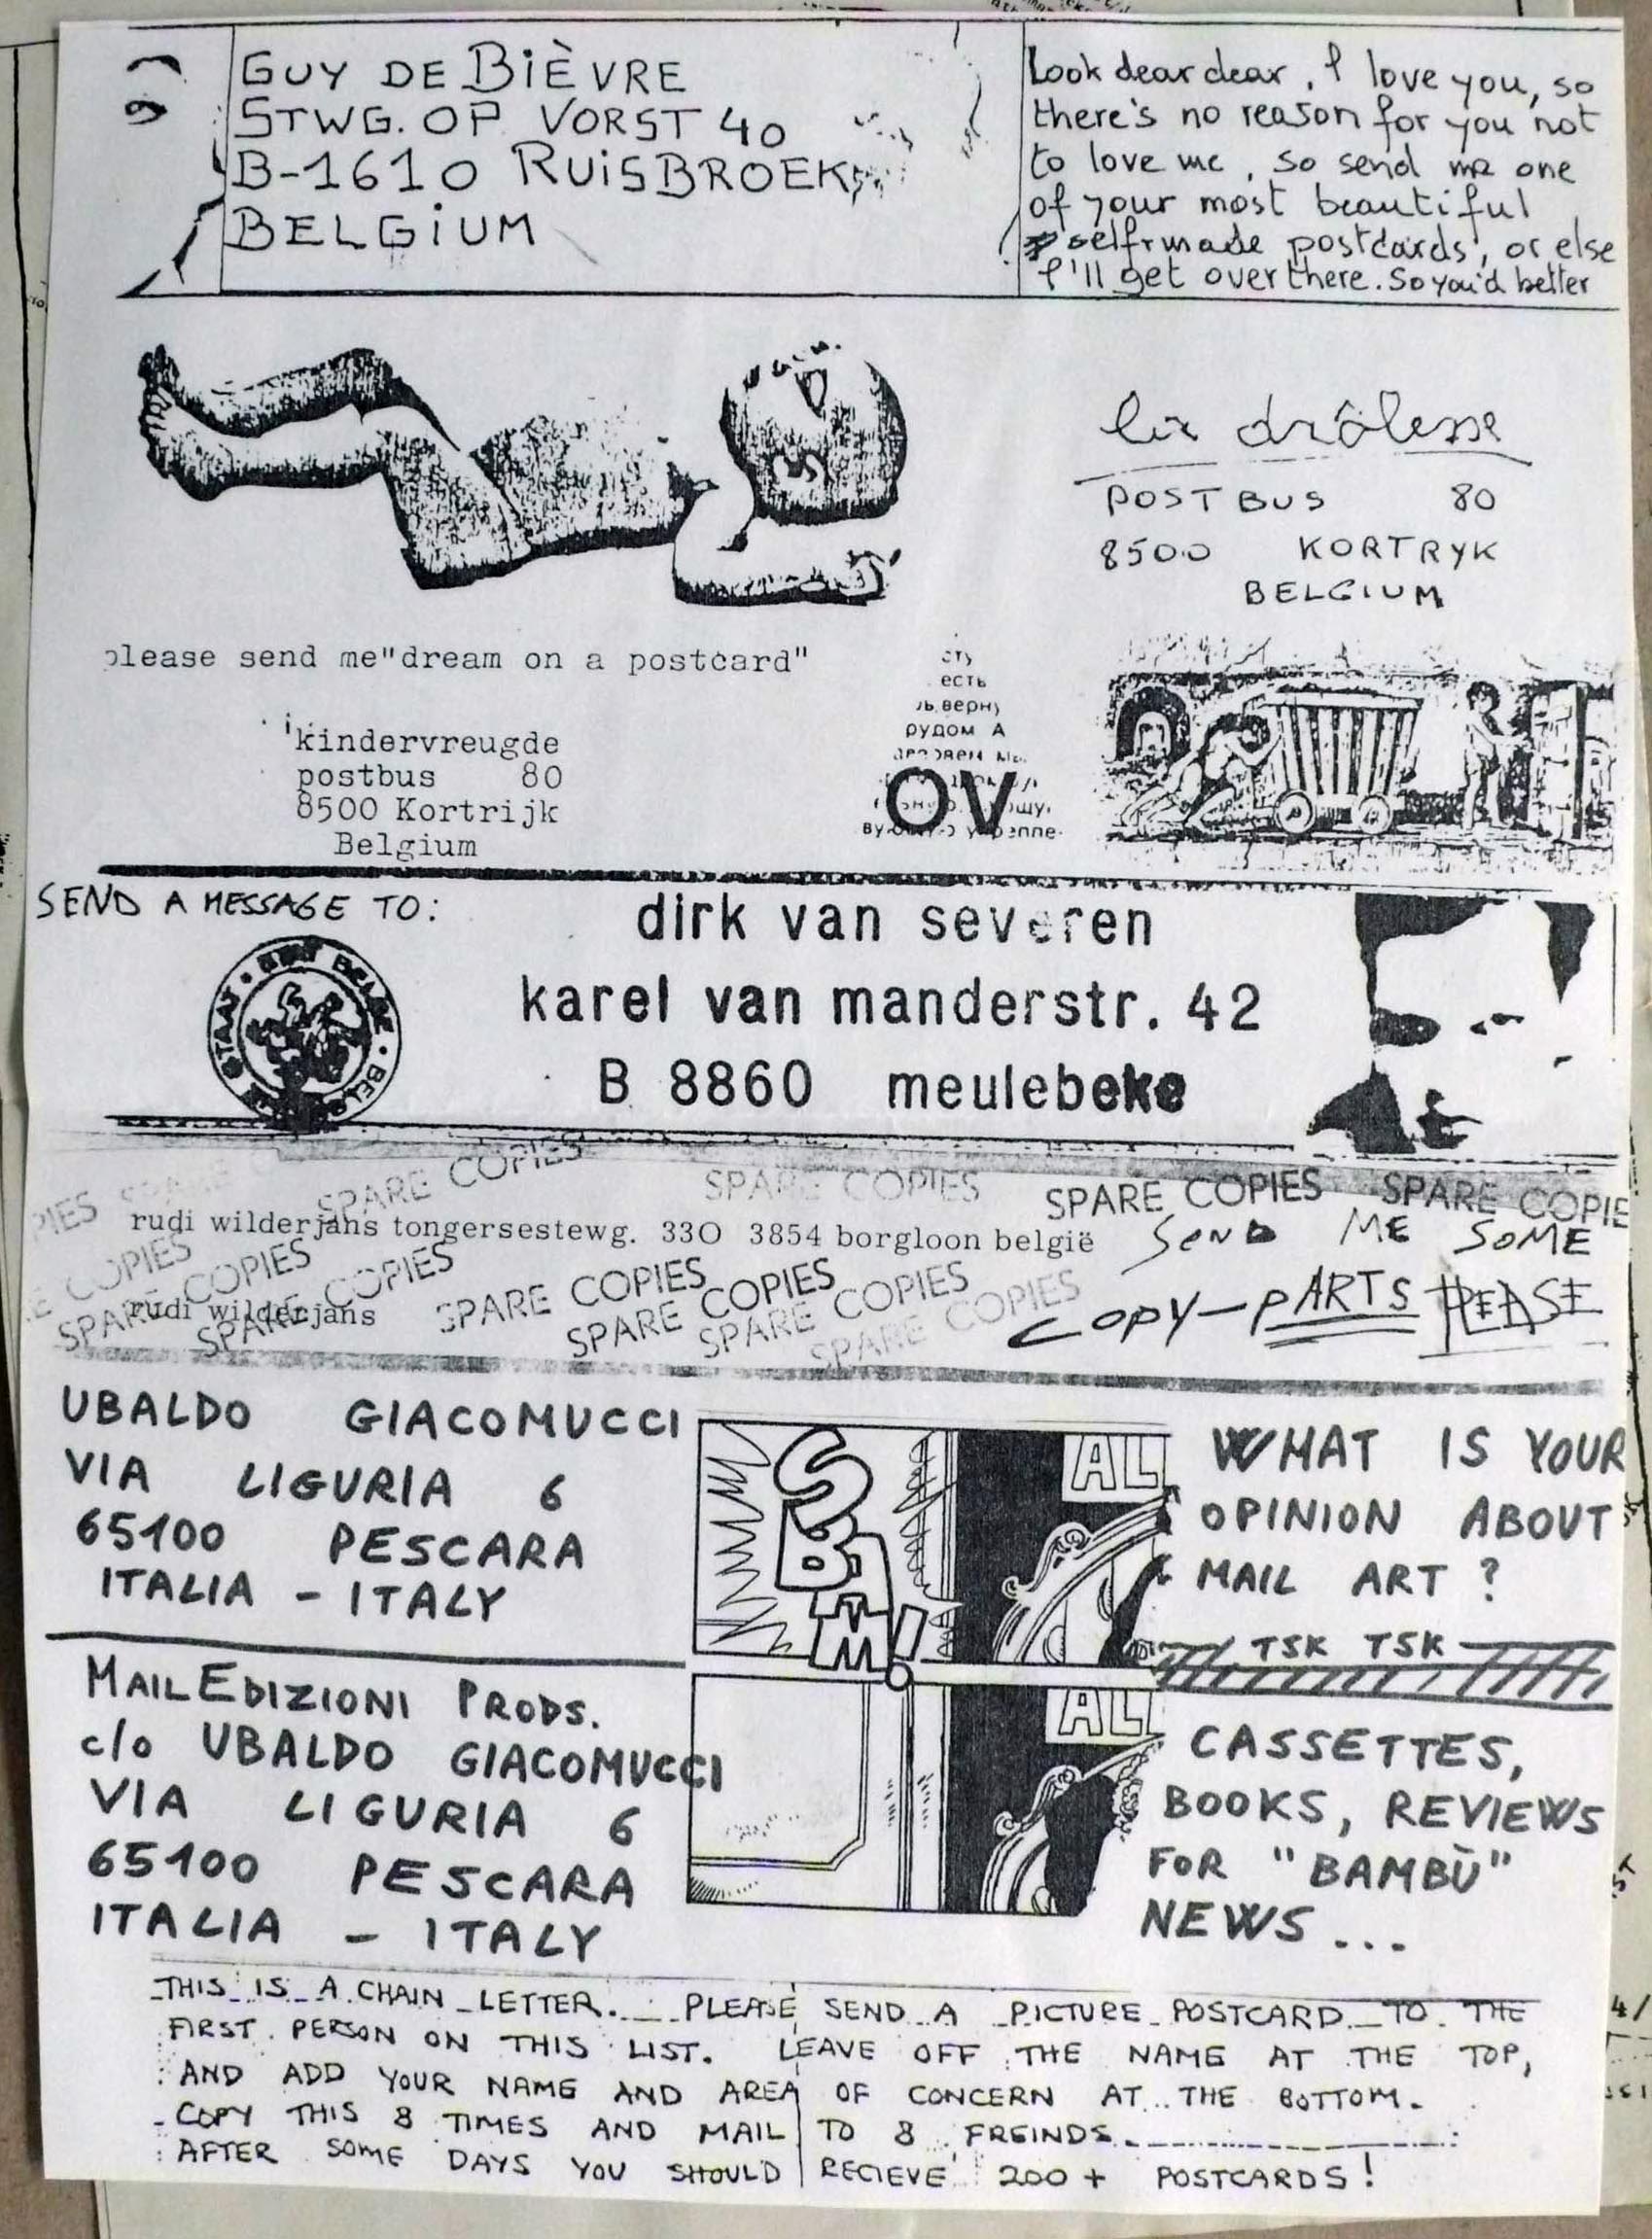 GUY DE BIÈVRE
STWG. OP VORST 40
B-1610 RUISBROEK
BELGIUM
Look dear dear, I love you, so
there's no reason for you not
to love me, so send me one
of your most beautiful
selfmade postcards, or else
I'll get over there. So you'd better
la drôlesse
POSTBUS 80
8500 KORTRYK
BELGIUM
please send me "dream on a postcard"
kindervreugde
postbus 80
8500 Kortrijk
Belgium
есть
верну
рудом А
OV
SEND A MESSAGE TO:
dirk van severen
karel van manderstr. 42
B 8860 meulebeke
STAAT BELGE
SPARE COPIES
SPARE COPIES
SPARE COPIES
SPARE COPIE
rudi wilderjans tongersestewg. 330 3854 borgloon belgië
SEND ME SOME
COPY-PARTS PLEASE
COPIES
SPARE COPIES
SPARE COPIES
SPARE COPIES
SPARE COPIES
SPARE COPIES
SPARE COPIES
rudi wilderjans
UBALDO GIACOMUCCI
VIA LIGURIA 6
65100 PESCARA
ITALIA - ITALY
SBTAM!
AL
WHAT IS YOUR
OPINION ABOUT
MAIL ART?
TSK TSK
MAILEDIZIONI PRODS.
c/o UBALDO GIACOMUCCI
VIA LIGURIA 6
65100 PESCARA
ITALIA - ITALY
AL
CASSETTES,
BOOKS, REVIEWS
FOR "BAMBÙ"
NEWS...
THIS IS A CHAIN LETTER. PLEASE SEND A PICTURE POSTCARD TO THE
FIRST PERSON ON THIS LIST. LEAVE OFF THE NAME AT THE TOP,
AND ADD YOUR NAME AND AREA OF CONCERN AT THE BOTTOM.
COPY THIS 8 TIMES AND MAIL TO 8 FREINDS.
AFTER SOME DAYS YOU SHOULD RECIEVE 200+ POSTCARDS!